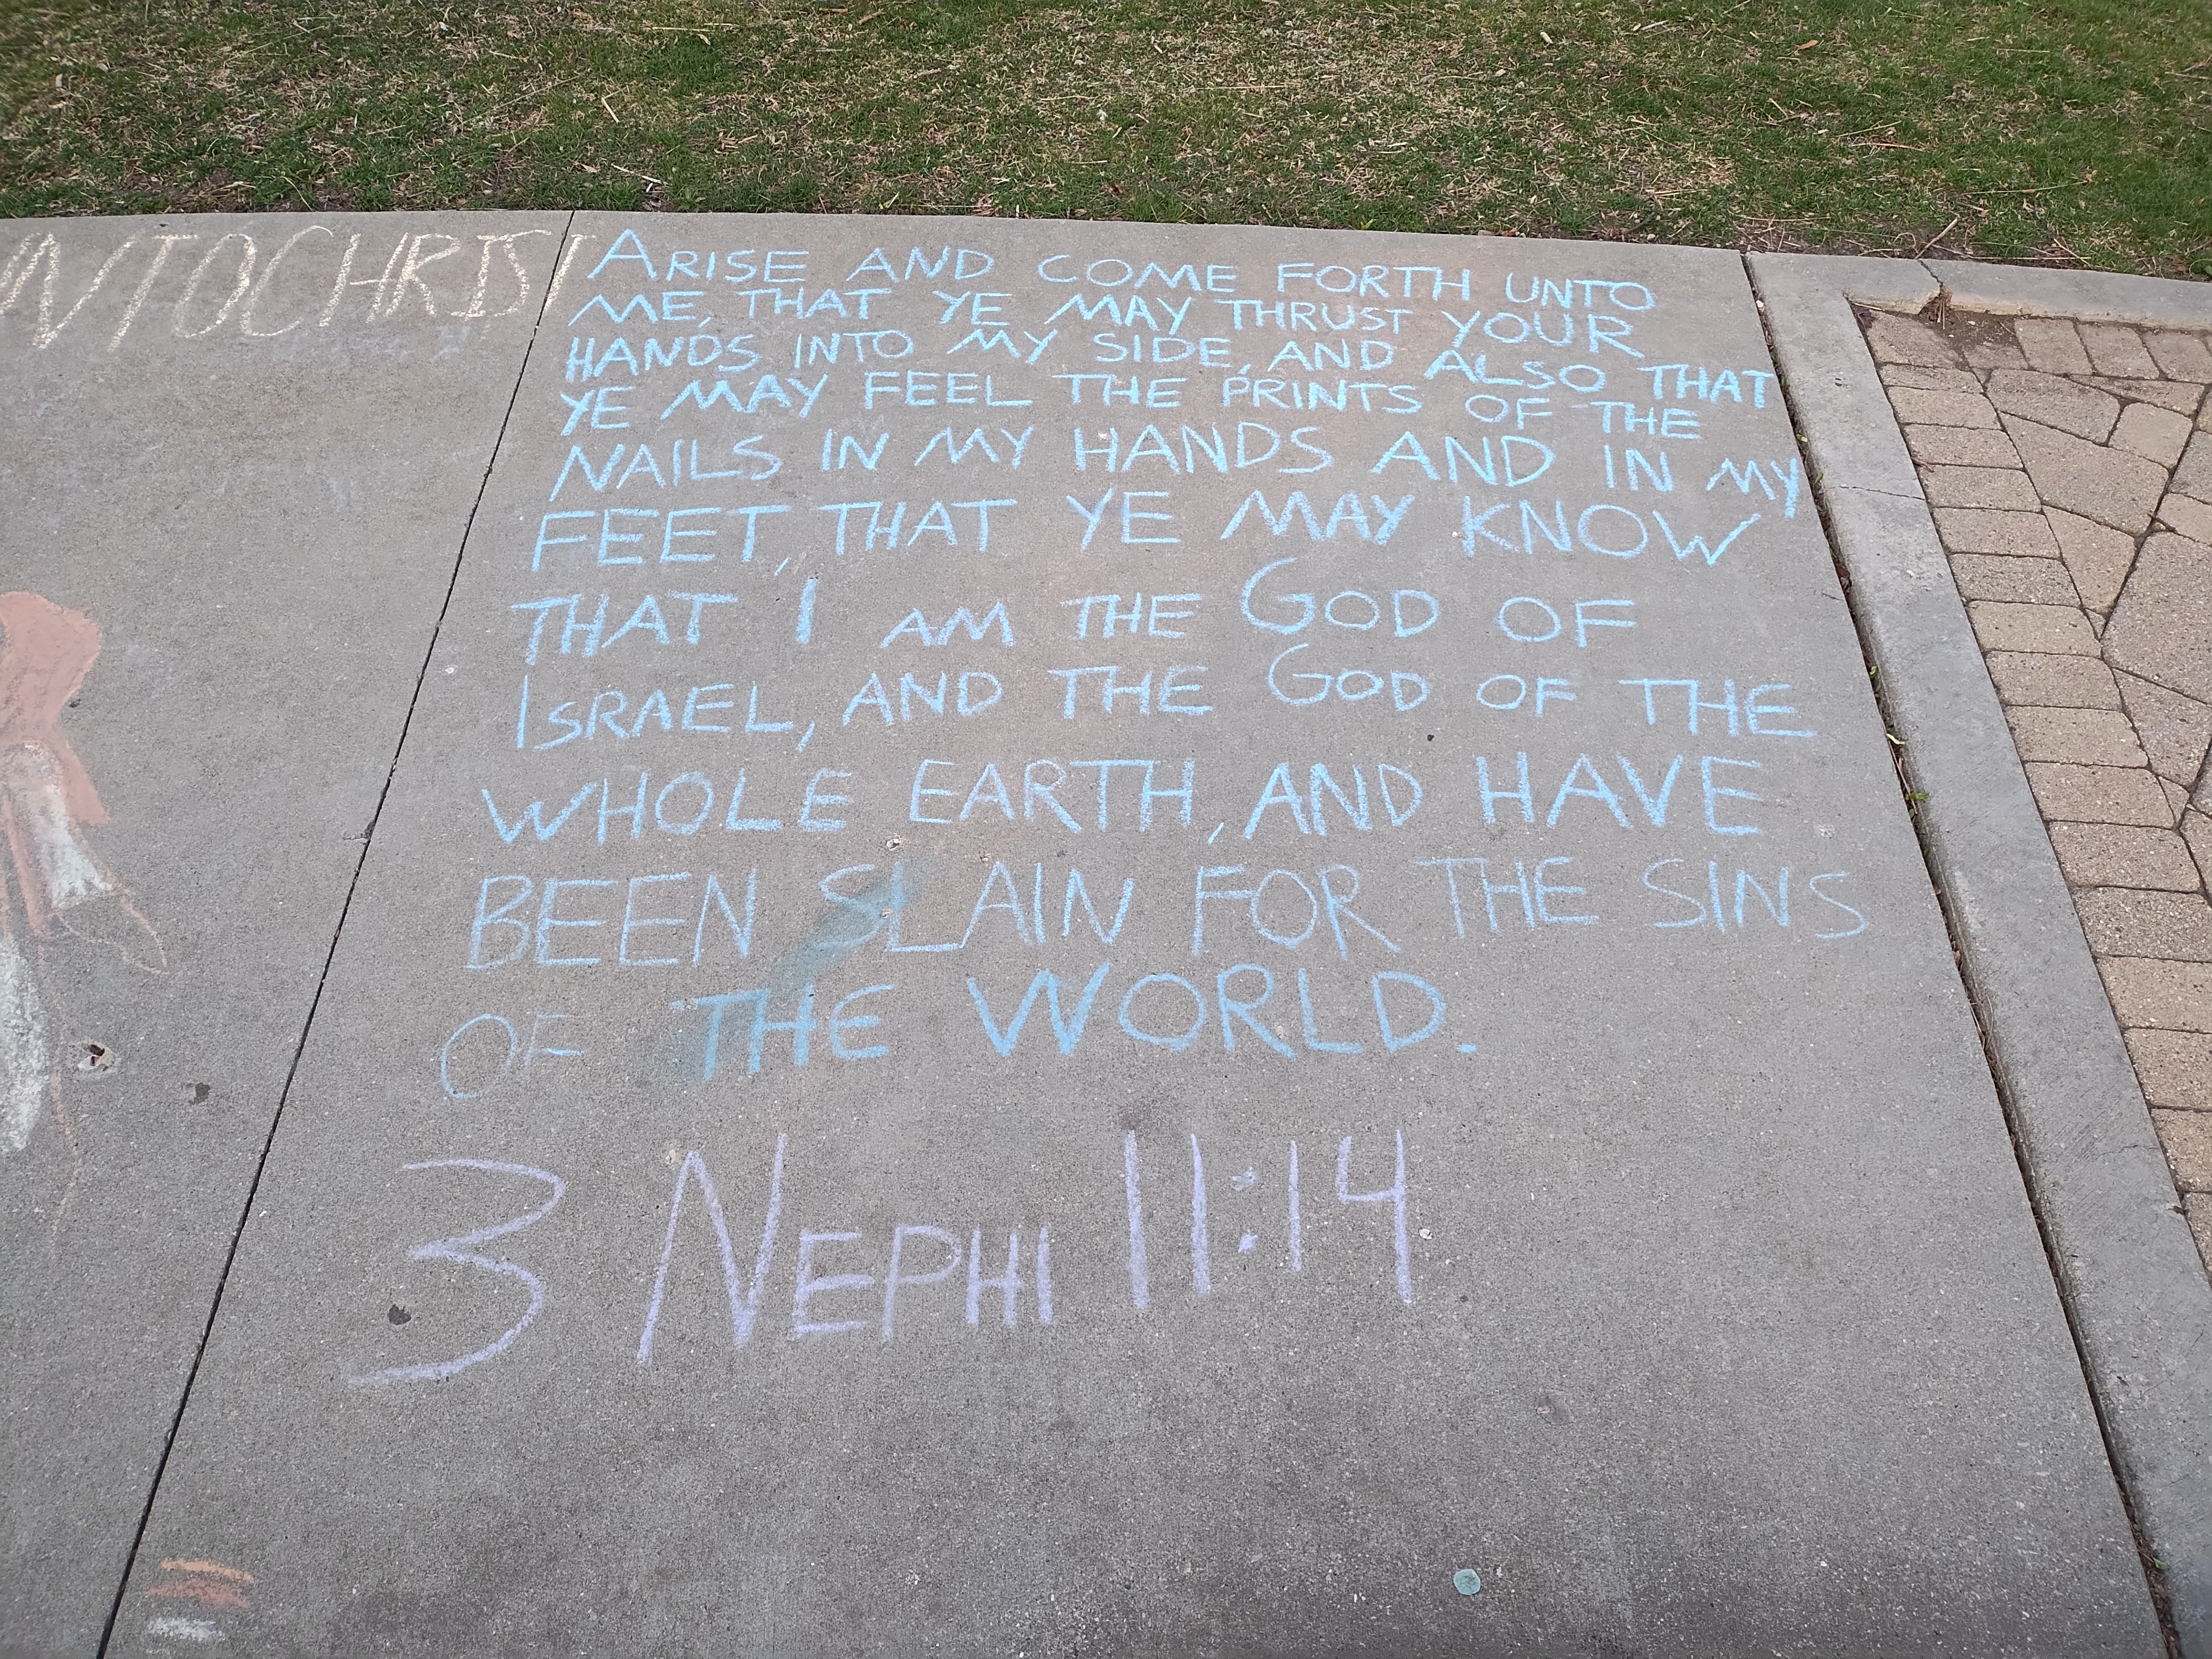 NTO CHRIST
ARISE AND COME FORTH UNTO
ME, THAT YE MAY THRUST YOUR
HANDS INTO MY SIDE, AND ALSO THAT
YE MAY FEEL THE PRINTS OF THE
NAILS IN MY HANDS AND IN MY
FEET, THAT YE MAY KNOW
THAT I AM THE GOD OF
ISRAEL, AND THE GOD OF THE
WHOLE EARTH, AND HAVE
BEEN SLAIN FOR THE SINS
OF THE WORLD.
3 NEPHI 11:14